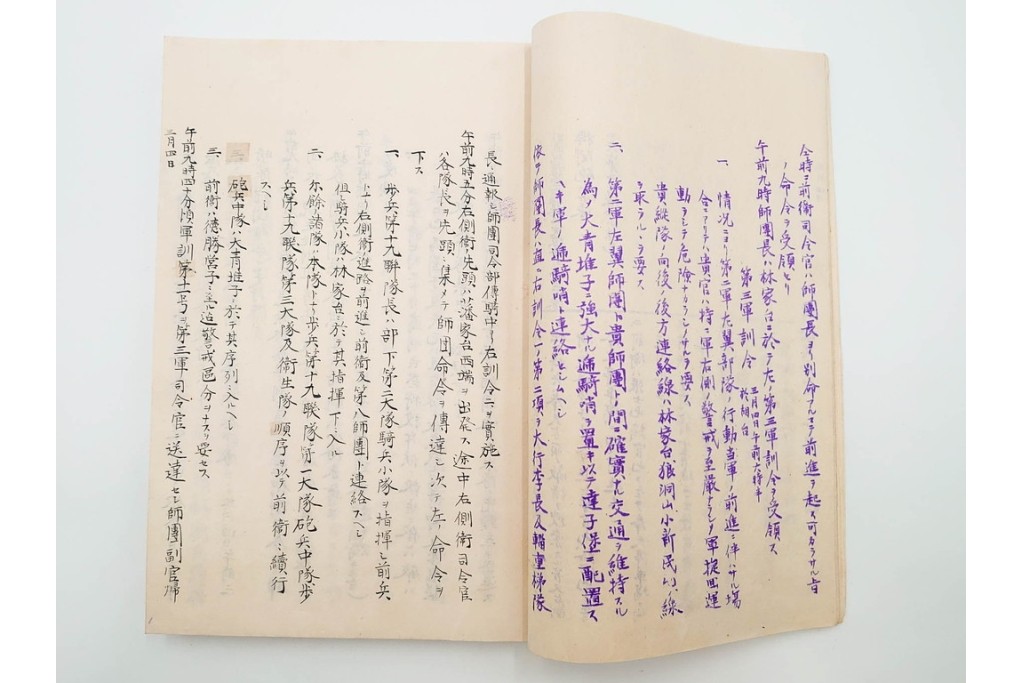 全時ニ前衛司令官ハ師團長ヨリ別命アルマテ前進ヲ起ス可カラサル旨
ノ命令ヲ受領セリ
午前九時師團長ハ林家台ニ於テ左ノ第三軍訓令ヲ受領ス
第三軍訓令 三月四日午前六時半
一、情況ニヨリ第二軍左翼部隊ノ行動当軍ノ前進ニ伴ハサル場
合ニアリテハ貴官ハ特ニ軍右側ノ警戒ヲ至嚴トシ軍旋回運
動ヲシテ危険ナカラシムルヲ要ス
貴縦隊ノ向後後方連絡線ハ林家台狼洞山小新民ノ線
ヲ取ラルヽヲ要ス
二、第二軍左翼師團ト貴師團トノ間ニ確實ナル交通ヲ維持スル
為メ大青堆子ニ強大ナル遞騎哨ヲ置キ以テ達子堡ニ配置ス
ヘキ軍ノ遞騎哨ト連絡セシムヘシ
依テ師團長ハ直ニ右訓令一ノ第二項ヲ大行李長及輜重梯隊
長ニ通報シ師團司令部傳騎中ヨリ右訓令二ヲ實施ス
午前九時五分右側衛ノ先頭ハ藩家台西端ヲ出発ス途中右側衛司令官
ハ各隊長ヲ先頭ニ集メテ師團命令ヲ傳達シ次テ左ノ命令ヲ
下ス
一、歩兵第十九聯隊長ハ部下第二大隊騎兵小隊ヲ指揮シ前兵
トナリ右側衛進路ヲ前進シ前衛及第八師團ト連絡スヘシ
但シ騎兵小隊ハ林家台ニ於テ其指揮下ニ入ル
二、尓餘諸隊ハ本隊トナリ歩兵第十九联隊第一大隊砲兵中隊歩
兵第十九联隊第三大隊及衛生隊ノ順序ヲ以テ前衛ニ續行
スヘシ
三、砲兵中隊ハ大青堆子ニ於テ其序列ニ入ルヘシ
三、前衛ハ徳勝営子ニ至ル迠警戒區分ヲナスヲ要セス
午前九時四十分頃軍訓第十一号ヲ第三軍司令官ニ送達セシ師團副官帰
三月四日